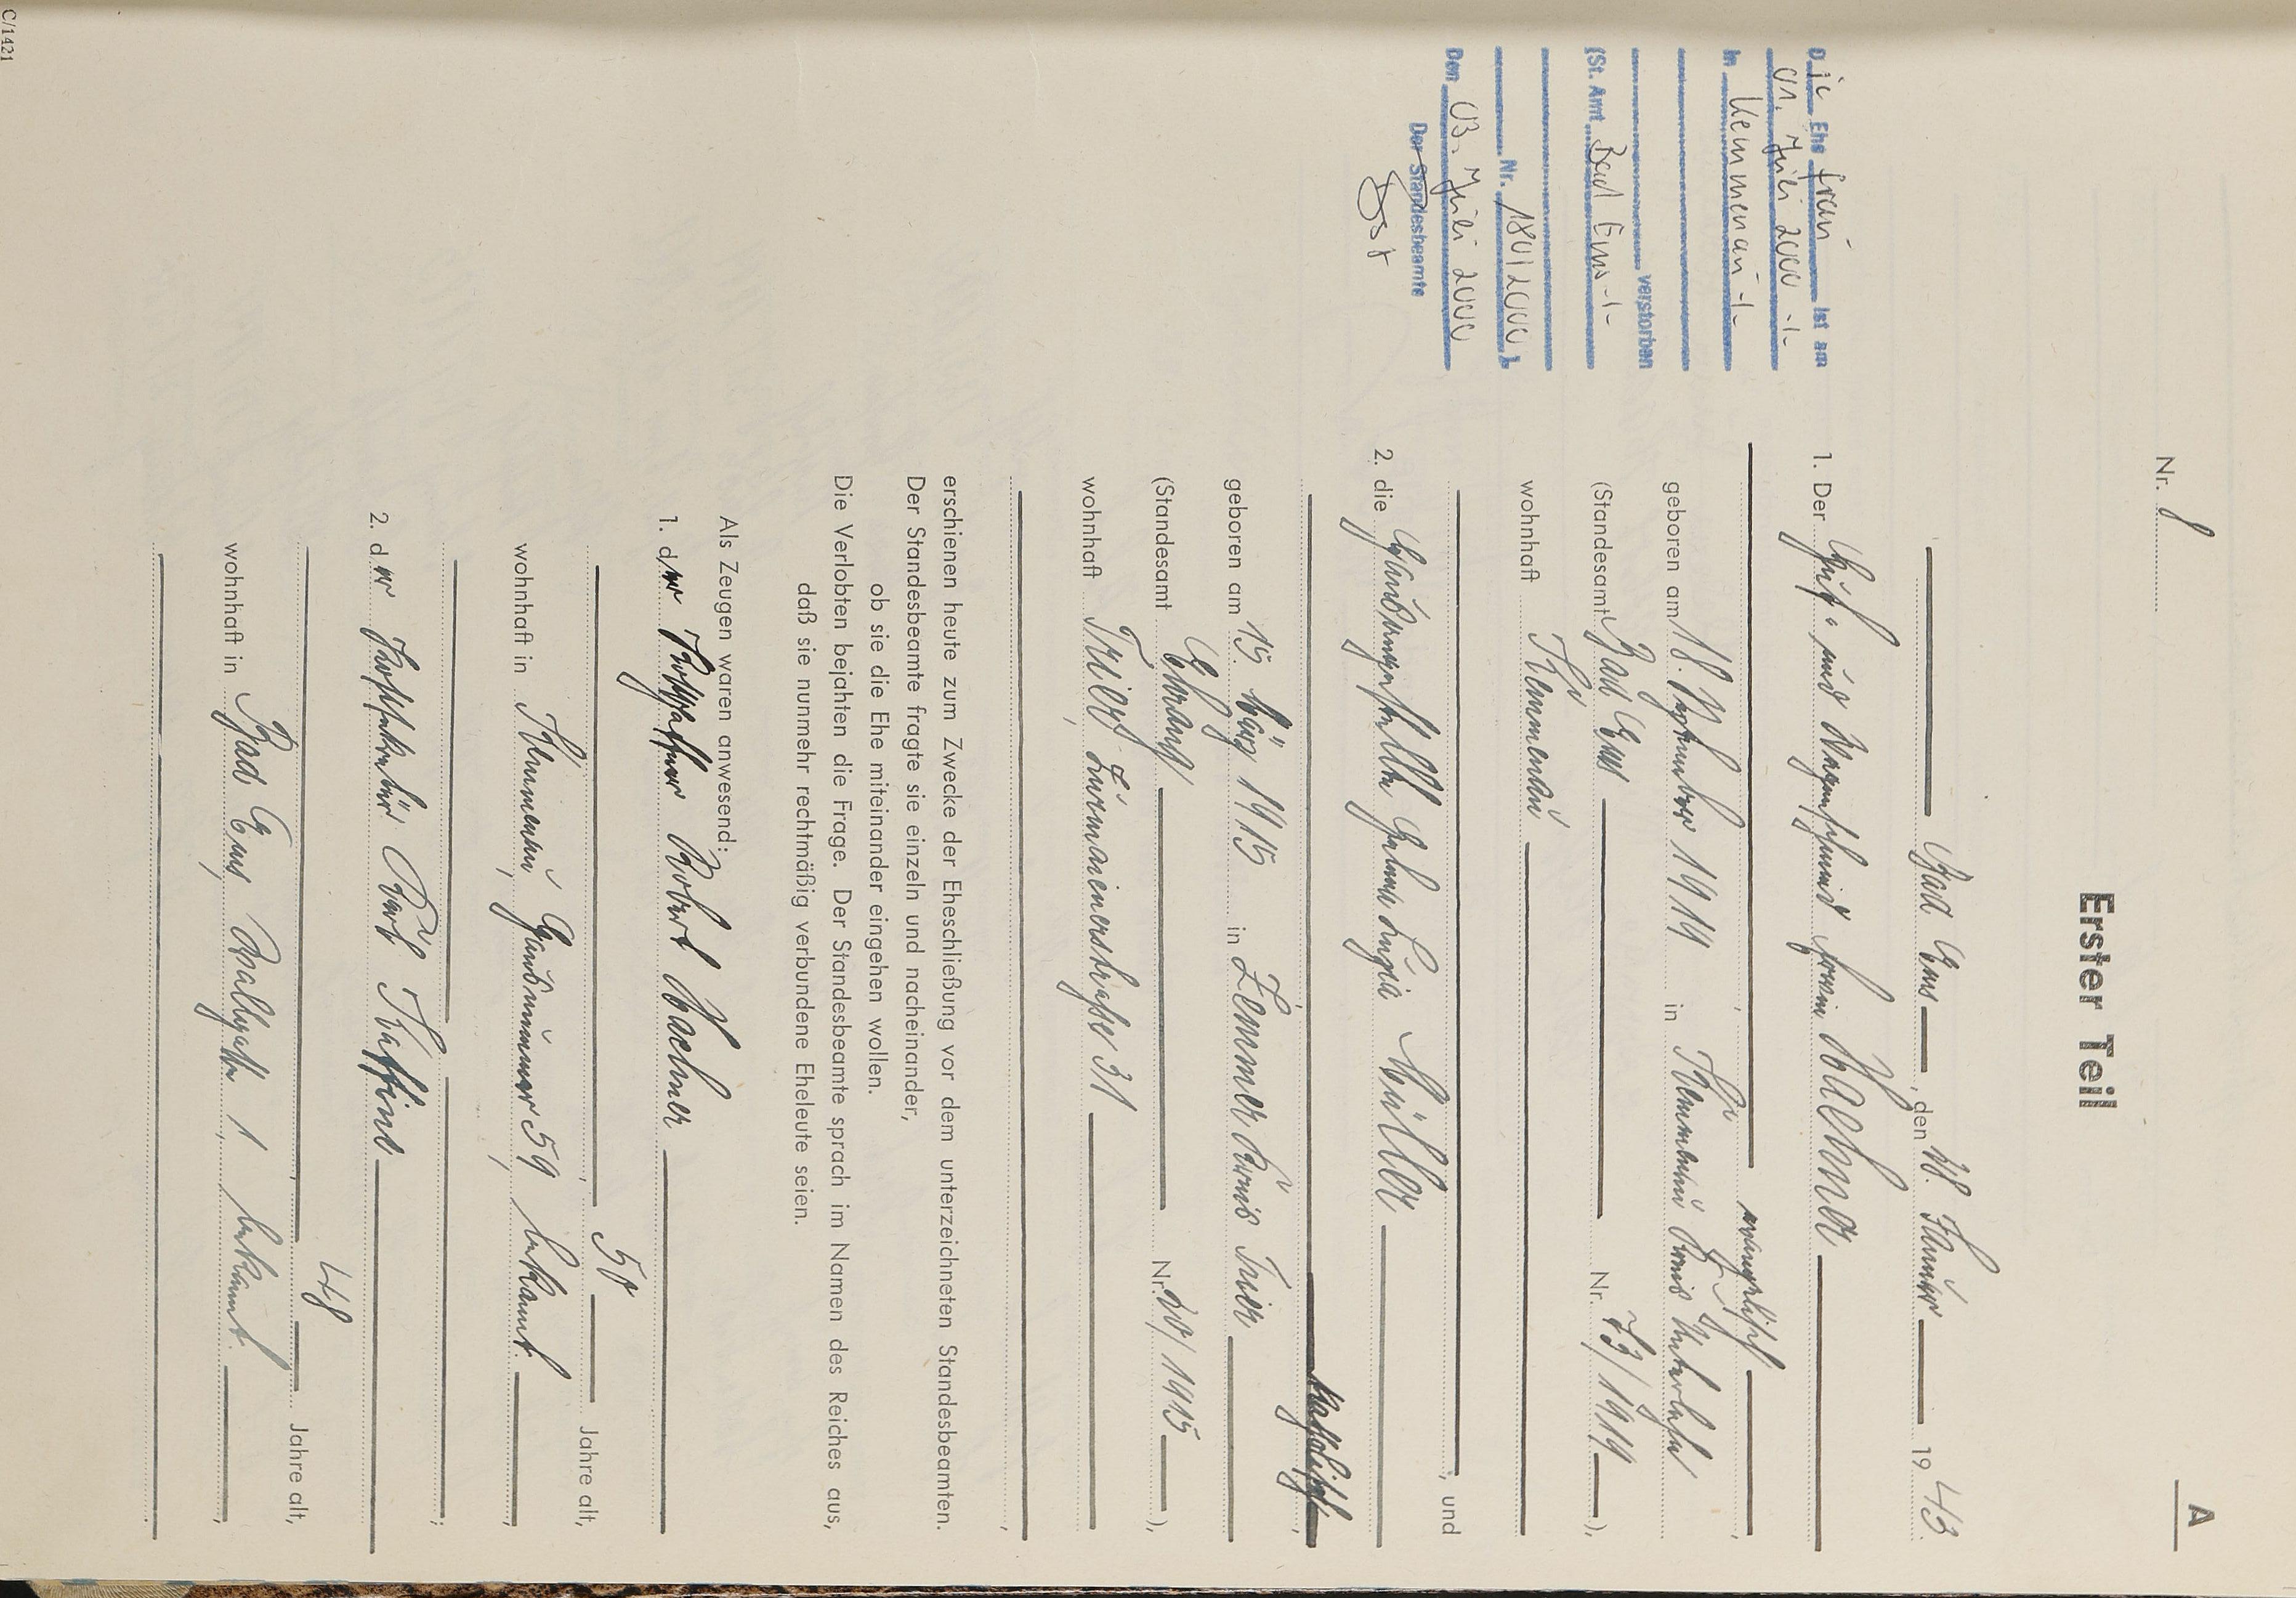 A
Nr. 1
Erster Teil
Bad Ems, den 18. Januar 1943.
1. Der Huf- und Wagenschmied Erwin Wachner
evangelisch,
geboren am 18. September 1919 in Kemmenau Kreis Unterlahn
(Standesamt Bad Ems Nr. 73/1919),
wohnhaft Kemmenau
; und
2. die Hausangestellte Helena Luzia Müller
katholisch,
geboren am 15. März 1915 in Zemmer Kreis Trier
(Standesamt Ehrang Nr. 20/1915),
wohnhaft Trier, Zurmaienerstraße 31
,
erschienen heute zum Zwecke der Eheschließung vor dem unterzeichneten Standesbeamten.
Der Standesbeamte fragte sie einzeln und nacheinander,
ob sie die Ehe miteinander eingehen wollen.
Die Verlobten bejahten die Frage. Der Standesbeamte sprach im Namen des Reiches aus,
daß sie nunmehr rechtmäßig verbundene Eheleute seien.
Als Zeugen waren anwesend:
1. der Robert Wachner
50 Jahre alt,
wohnhaft in Kemmenau, Hausnummer 59, bekannt.
;
2. der Karl
48 Jahre alt,
wohnhaft in Bad Ems, 1, bekannt.
Die Ehe frau ist am
01. Juli 2000 -/-
in Kemmenau -/-
verstorben
(St. Amt Bad Ems -/-
Nr. 180/2000)
Den 03. Juli 2000
Der Standesbeamte
C/1421